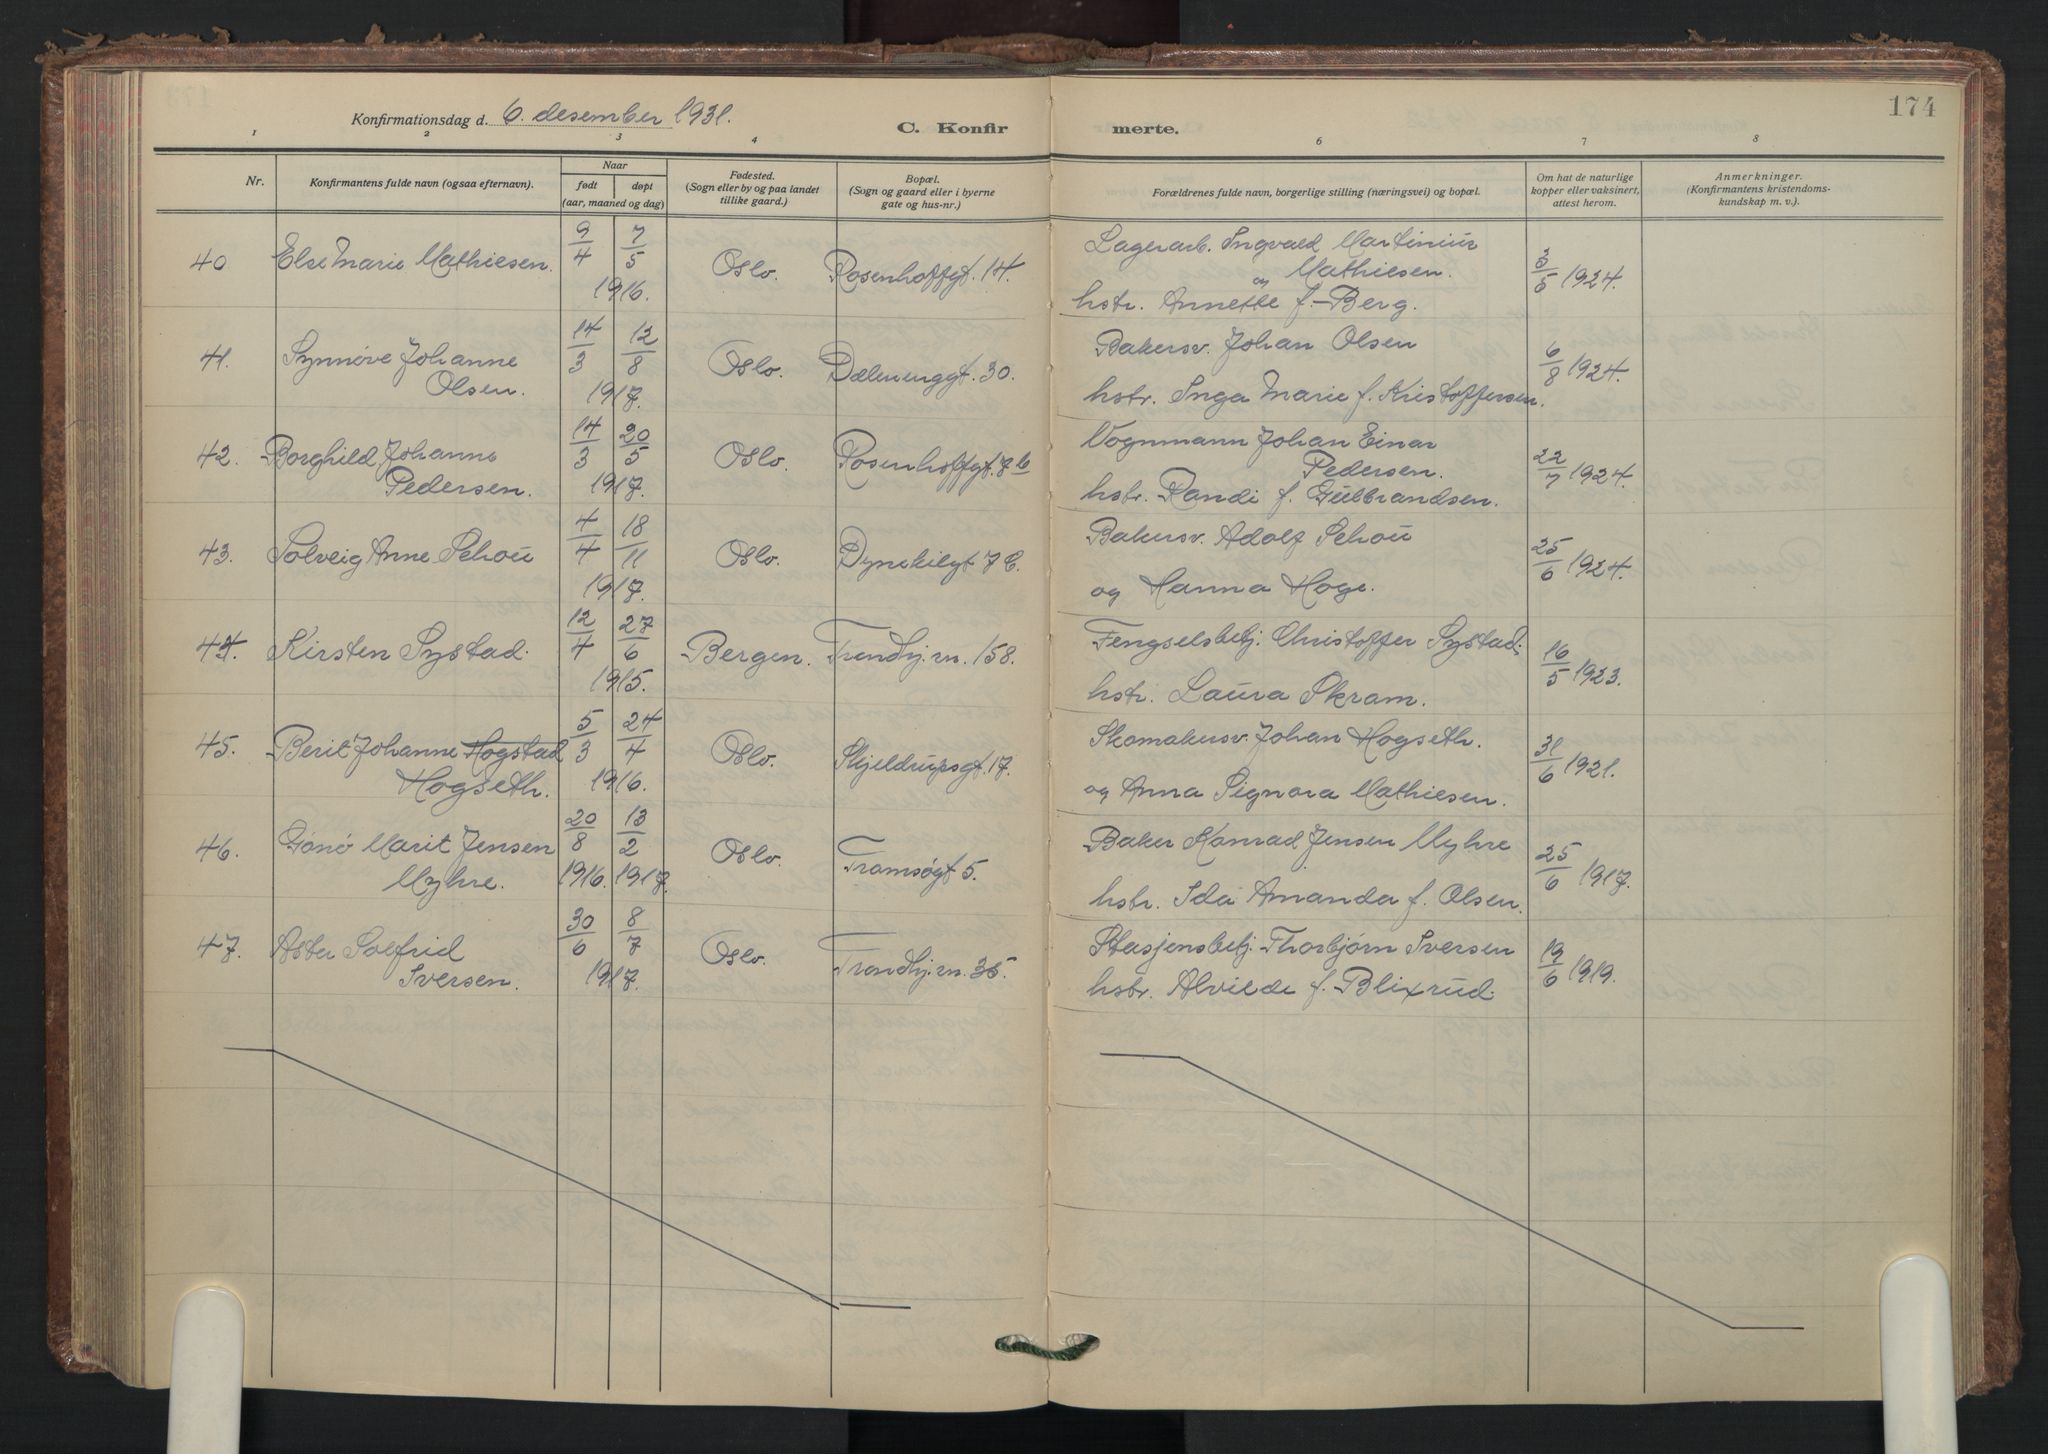 174
Konfirmationsdag d. 6. desember 1931.
C. Konfir merte.
1 2 3 4 6 7 8
Nr.
Konfirmantens fulde navn (ogsaa efternavn).
Naar
født døpt
(aar, maaned og dag)
Fødested.
(Sogn eller by og paa landet
tillike gaard.)
Bopæl.
(Sogn og gaard eller i byerne
gate og hus-nr.)
Forældrenes fulde navn, borgerlige stilling (næringsvei) og bopæl.
Om hat de naturlige
kopper eller vaksinert,
attest herom.
Anmerkninger.
(Konfirmantens kristendoms-
kundskap m. v.).
40 Else Marie Mathiesen. 9/4 7/5 1916. Oslo. Rosenhoffgt. 14. Lagerarb. Ingvald Martinius
Mathiesen. 3/5 1924.
og
hstr. Annette f. Berg.
41. Synnøve Johanne 14/3 12/8 Oslo. Dælenenggt. 30. Bakersv. Johan Olsen 6/8 1924.
Olsen. 1917. hstr. Inga Marie f. Kristoffersen.
42. Borghild Johanne 14/3 20/5 Oslo. Rosenhoffgt. 7 b Vognmann Johan Einar
Pedersen. 1917. Pedersen. 22/7 1924.
hstr. Randi f. Gulbrandsen.
43. Solveig Anne Schou 4/4 18/11 1917. Oslo. Dynekilgt 7 b. Bakersv. Adolf Schou 25/6 1924.
og Hanna Hoge.
44. Kirsten Systad. 12/4 27/6 1915. Bergen. Trondhj.vn. 158. Fengselsbetj. Christoffer Systad. 16/5 1923.
hstr. Laura Skram.
45. Berit Johanne Hogstad 5/3 24/4 Oslo. Skjeldrupsgt. 17. Skomakersv. Johan Hogseth. 31/6 1921.
Hogseth. 1916. og Anna Signora Mathiesen.
46. Gønø Marit Jensen 20/8 13/2 Oslo. Tromsøgt 5. Baker Konrad Jensen Myhre 25/6 1917.
Myhre. 1916. 1917. hstr. Ida Amanda f. Olsen.
47. Aster Solfrid 30/6 8/7 Oslo. Trondhj.vn. 35. Stasjonsbetj. Thorbjørn Iversen 19/6 1919.
Iversen. 1917. hstr. Alvilde f. Blixrud.